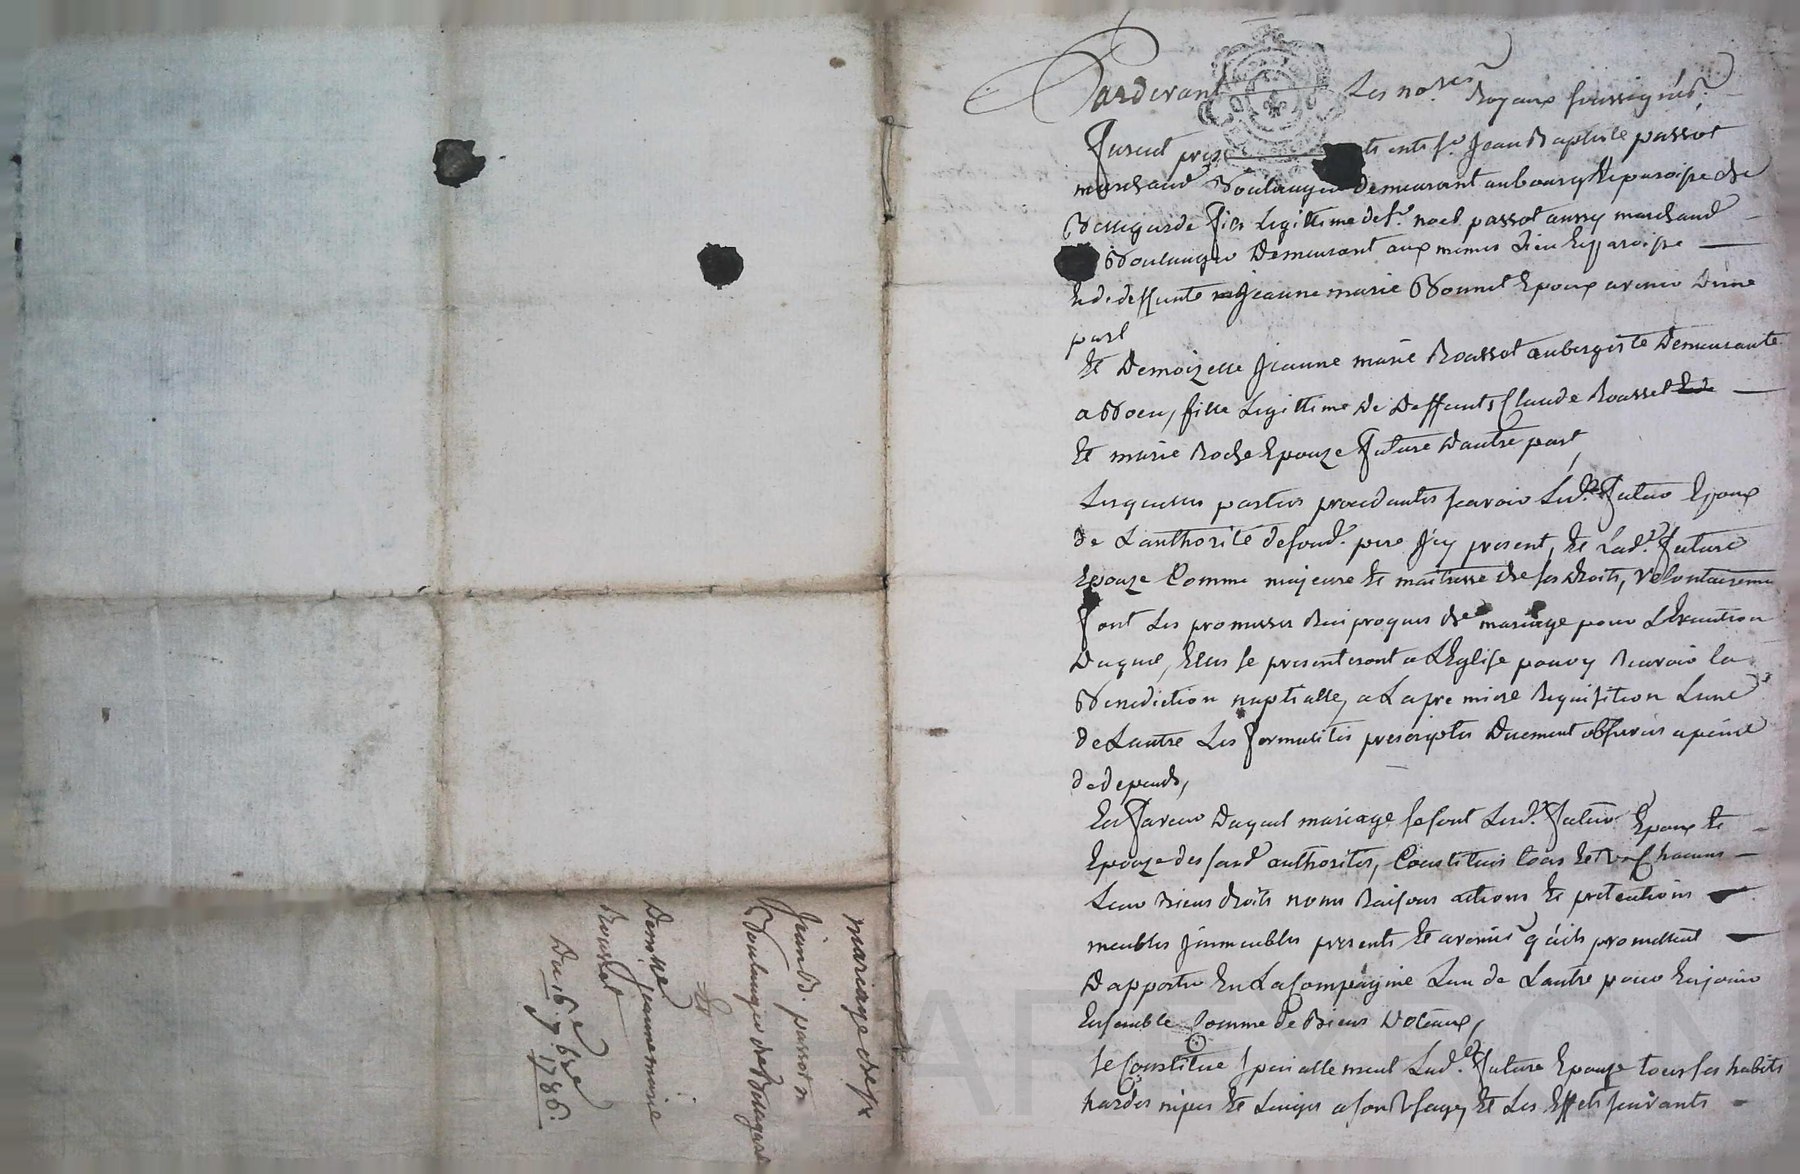 mariage de sr
Jean Bte. passot m
Boulanger de Bellegarde
Et
Demoislle jeanne marie
Roussot
Du 16e 7bre 1786.
Pardevant Les nores Royaux soussignés,
Furent pres ts sr. Jean Baptiste passot
marchand Boulanger demeurant au bourg Et paroisse de
Bellegarde fils legittime de sr. noel passot aussy marchand
Boulanger Demeurant aux memes Lieu Et paroisse
Et de deffunte Jeanne marie Bonnet Epoux avenir Dune
part
Et Demoizelle Jeanne marie Roussot aubergiste Demeurante
a Boeu, fille Legittime De Deffunts Claude Roussot Et de
Et marie Roche Epouze future Dautre part,
Lesquelles parties procedantes scavoir Led. futur Epoux
de Lauthorité de soud. pere Jcy present, Et Lad. future
Epouze Comme majeure Et maitresse de ses droits, volontairemt
font Les promesses Reciproques de mariage pour LExecution
Duquel, Elles se presenteront a LEglise pour y Recevoir la
Benediction nuptialle, a La premiere Requisition Lune
de Lautre Les formalités prescriptes Duement observées a peine
de depends,
En faveur Duquel mariage se sont Lesd. futurs Epoux Et
Epouze desd authorités, Constitués tous Et Un Chacuns
Leur Biens droits noms Raisons actions Et pretentions
meubles Jmmeubles presents Et avenir qu'ils promettent
Dapporter En La Compagnie Lun de Lautre pour En jouir
Ensemble Comme de Biens Dotaux,
se Constitue speciallement Lad. future Epouze tous ses habits
hardes nipes Et Linges a son Usage, Et Les Effets suivants